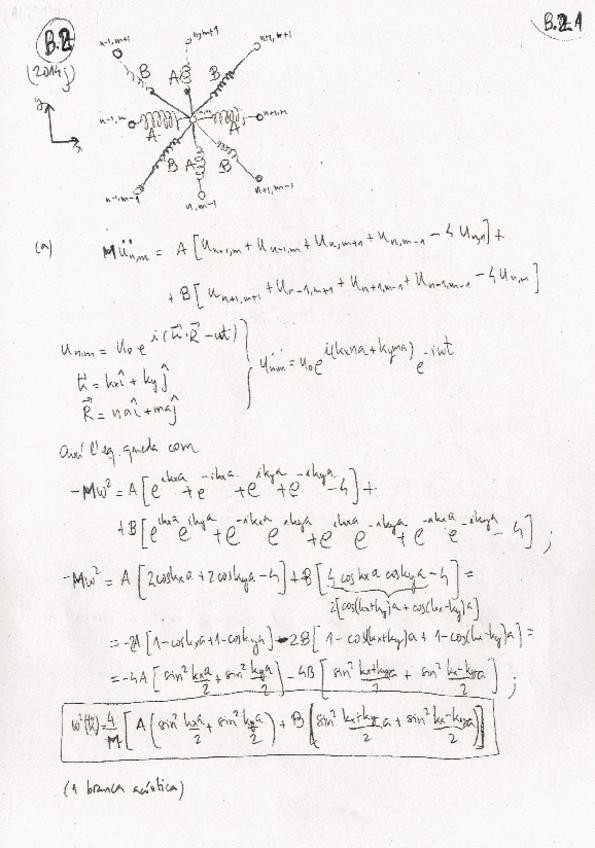 B.2
(2014j)
B.2.1
n-1, m+1
n, m+1
n+1, m+1
B A B
y
x
n-1, m
n, m
n+1, m
A A
B A B
n-1, m-1
n, m-1
n+1, m-1
(a) M ü_{n,m} = A [u_{n+1,m} + u_{n-1,m} + u_{n,m+1} + u_{n,m-1} - 4 u_{n,m}] +
+ B [u_{n+1,m+1} + u_{n-1,m+1} + u_{n+1,m-1} + u_{n-1,m-1} - 4 u_{n,m}]
u_{n,m} = u_0 e^{i(\vec{k}·\vec{R} - ωt)}
\vec{k} = kx î + ky ĵ
\vec{R} = na î + ma ĵ
u_{n,m} = u_0 e^{i(kxna + kyma)} e^{-iωt}
Així l'eq. queda com
-Mω² = A [e^{ikxa} + e^{-ikxa} + e^{ikya} + e^{-ikya} - 4] +
+ B [e^{ikxa} e^{ikya} + e^{-ikxa} e^{ikya} + e^{ikxa} e^{-ikya} + e^{-ikxa} e^{-ikya} - 4] ;
-Mω² = A [2coskxa + 2coskya - 4] + B [4 coskxa coskya - 4] =
2[cos(kx+ky)a + cos(kx-ky)a]
= -2A [1-coskxa + 1-coskya] - 2B [1-cos(kx+ky)a + 1-cos(kx-ky)a] =
= -4A [sin² kxa/2 + sin² kya/2] - 4B [sin² kx+ky/2 a + sin² kx-ky/2 a] ;
ω²(\vec{k}) = 4/M [A (sin² kxa/2 + sin² kya/2) + B (sin² kx+ky/2 a + sin² kx-ky/2 a)]
(1 branca acústica)